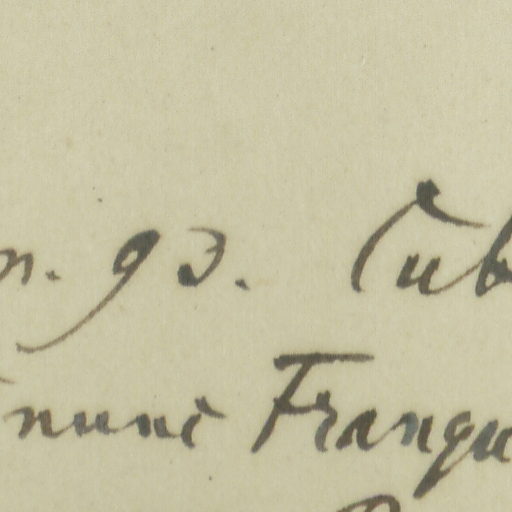 n. 90. Cub
nunc Franqu